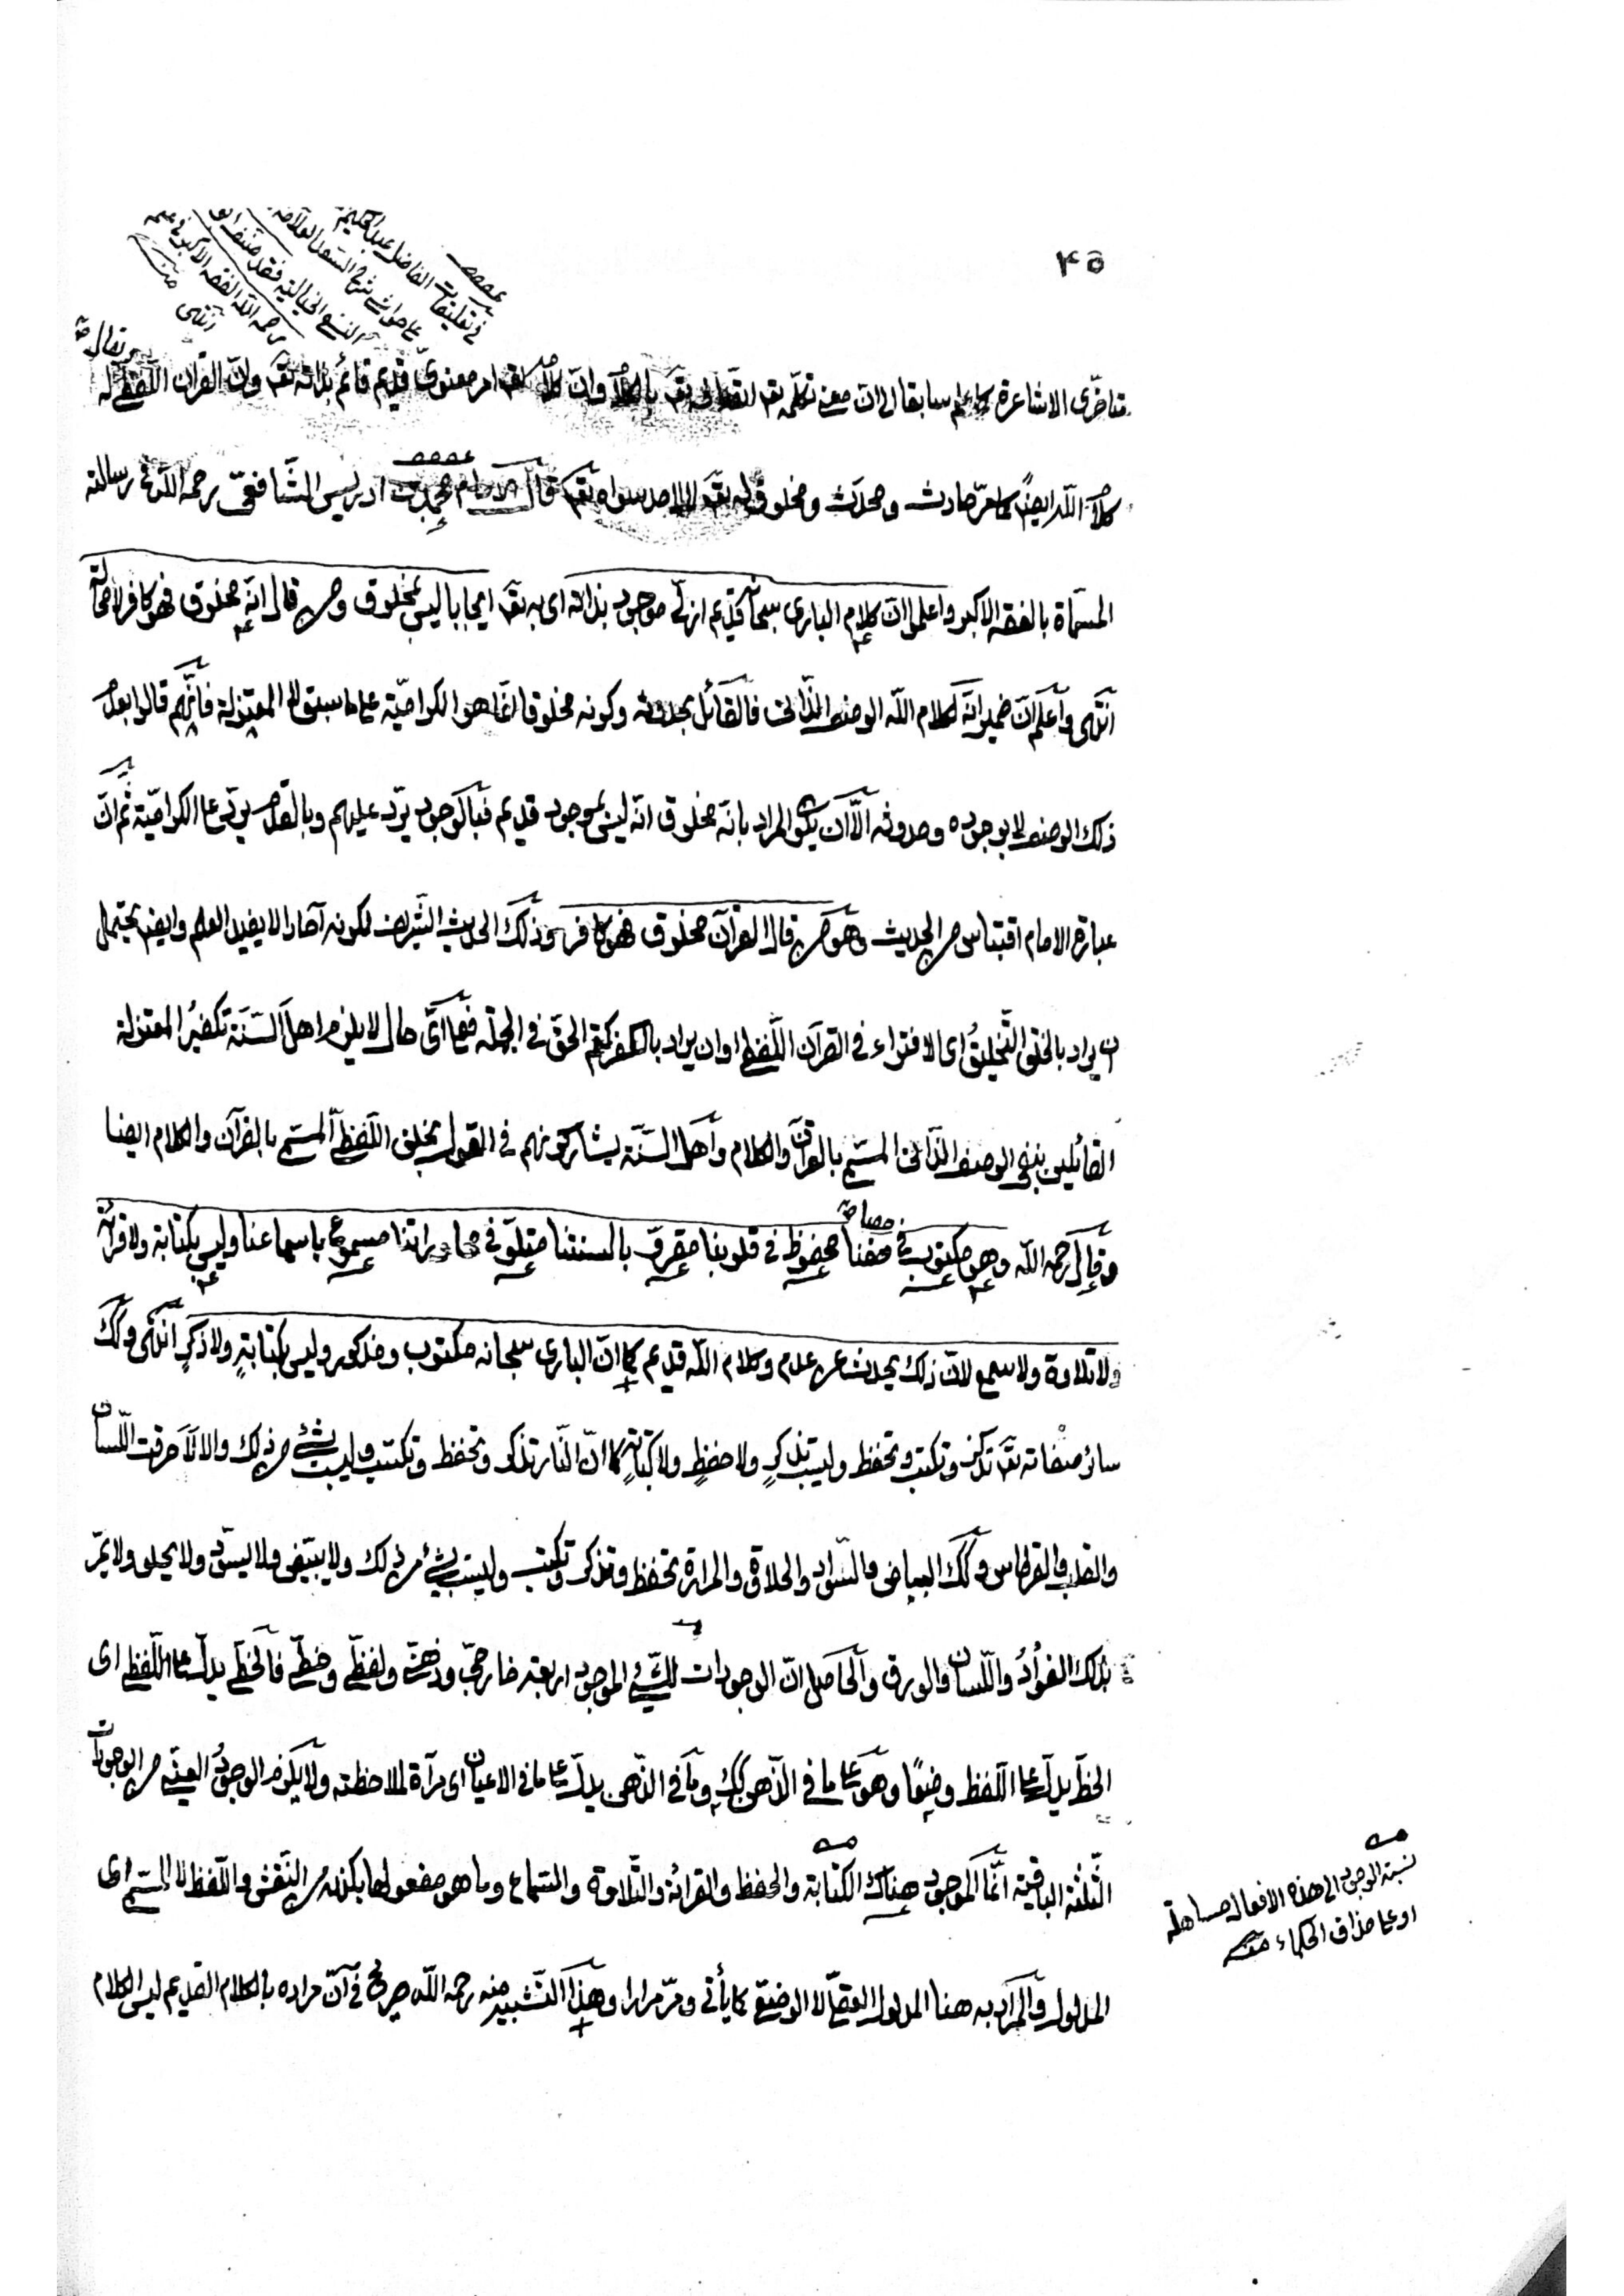 ٤٥
متأخرى الاشاعرة كما علم سابقا الى ان معنى تكلمه تع اتصافه تع بالكلام وان كلامه تع امر معنوى قديم قائم بذاته تع وان القرآن اللفظى له
كلام الله ايضا كما مر حادث ومحدث ومخلوق له تع لا لاحد سواه تع قال الامام محمد بن ادريس الشافعى رحمه الله فى رسالته
المسماة بالفقه الاكبر واعلموا ان كلام البارى سبحانه قديم ازلى موجود بذاته اى به تع ايجابا ليس بمخلوق ومن قال انه مخلوق فهو كافر لا محالة
انتهى واعلم ان ضمير انه لكلام الله الوصف الذاتى فالقائل بحدوثه وكونه مخلوقا انما هو الكرامية على ما سبق لا المعتزلة فانهم قالوا بعدم
ذلك الوصف لا بوجوده وحدوثه الا ان يكون المراد بانه مخلوق انه ليس بموجود قديم فبالوجود يرد عليهم وبالقدم يرد على الكرامية ثم ان
عبارة الامام اقتباس من الحديث وهو من قال القرآن مخلوق فهو كافر وذلك الحديث الشريف لكونه آحادا لا يفيد العلم وايضا يحتمل
ان يراد بالخلق التخليق اى الافتراء فى القرآن اللفظى او ان يراد بالكفر كتم الحق فى الجملة فعلى اى حال لا يلزم اهل السنة تكفير المعتزلة
القائلين بنفى الوصف الذاتى المسمى بالقرآن والكلام واهل السنة يشاركونهم فى القول بخلق اللفظى المسمى بالقرآن والكلام ايضا
وقال رحمه الله وهو مكتوب فى مصاحفنا محفوظ فى قلوبنا مقروّ بالسنتنا متلوّ فى محاريبنا مسموع باسماعنا وليس بكتابة ولا قرائة
ولا تلاوة ولا سمع لان ذلك يحدث عن عدم وكلام الله قديم كما ان البارى سبحانه مكتوب ومذكور وليس بكتابة ولا ذكر انتهى وكذلك
سائر صفاته تع تذكر وتكتب وتحفظ وليست بذكر ولا حفظ ولا كتابة كما ان النار تذكر وتحفظ وتكتب وليست بشئ من ذلك والا لاحرقت اللسان
والقلب والقرطاس وكذلك البياض والسواد والحلاوة والمرارة تحفظ وتذكر وتكتب وليست بشئ من ذلك ولا يبيض ولا يسود ولا يحلو ولا يمر
بذلك الفؤاد واللسان والورق والحاصل ان الوجودات للشئ الموجود اربعة خارجى وذهنى ولفظى وخطى فالخطى يدل على اللفظى اى
الخط يدل على اللفظ وضعًا وهو على ما فى الذهن كذلك وما فى الذهن يدل على ما فى الاعيان اى مرآة لملاحظته ولا يكون الوجود العينى من الوجودات
الثلثة الباقية انما الموجود هناك الكتابة والحفظ والقرائة والتلاوة والسماع وما هو مفعولها بكذا من النقش واللفظ لا المسمى اى
المدلول والمراد به هنا المدلول العقلى لا الوضعى كما يأتى ومر مرارا وهذا التشبيه منه رحمه الله صريح فى ان مراده بالكلام القديم ليس الكلام
نسبة الوجود الى هذه الافعال مساهلة
او على مذاق الحكماء منه